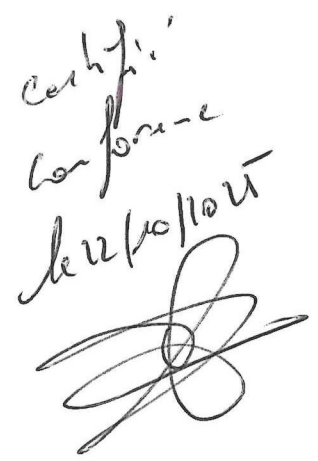 Certifié
Conforme
le 22/10/2025